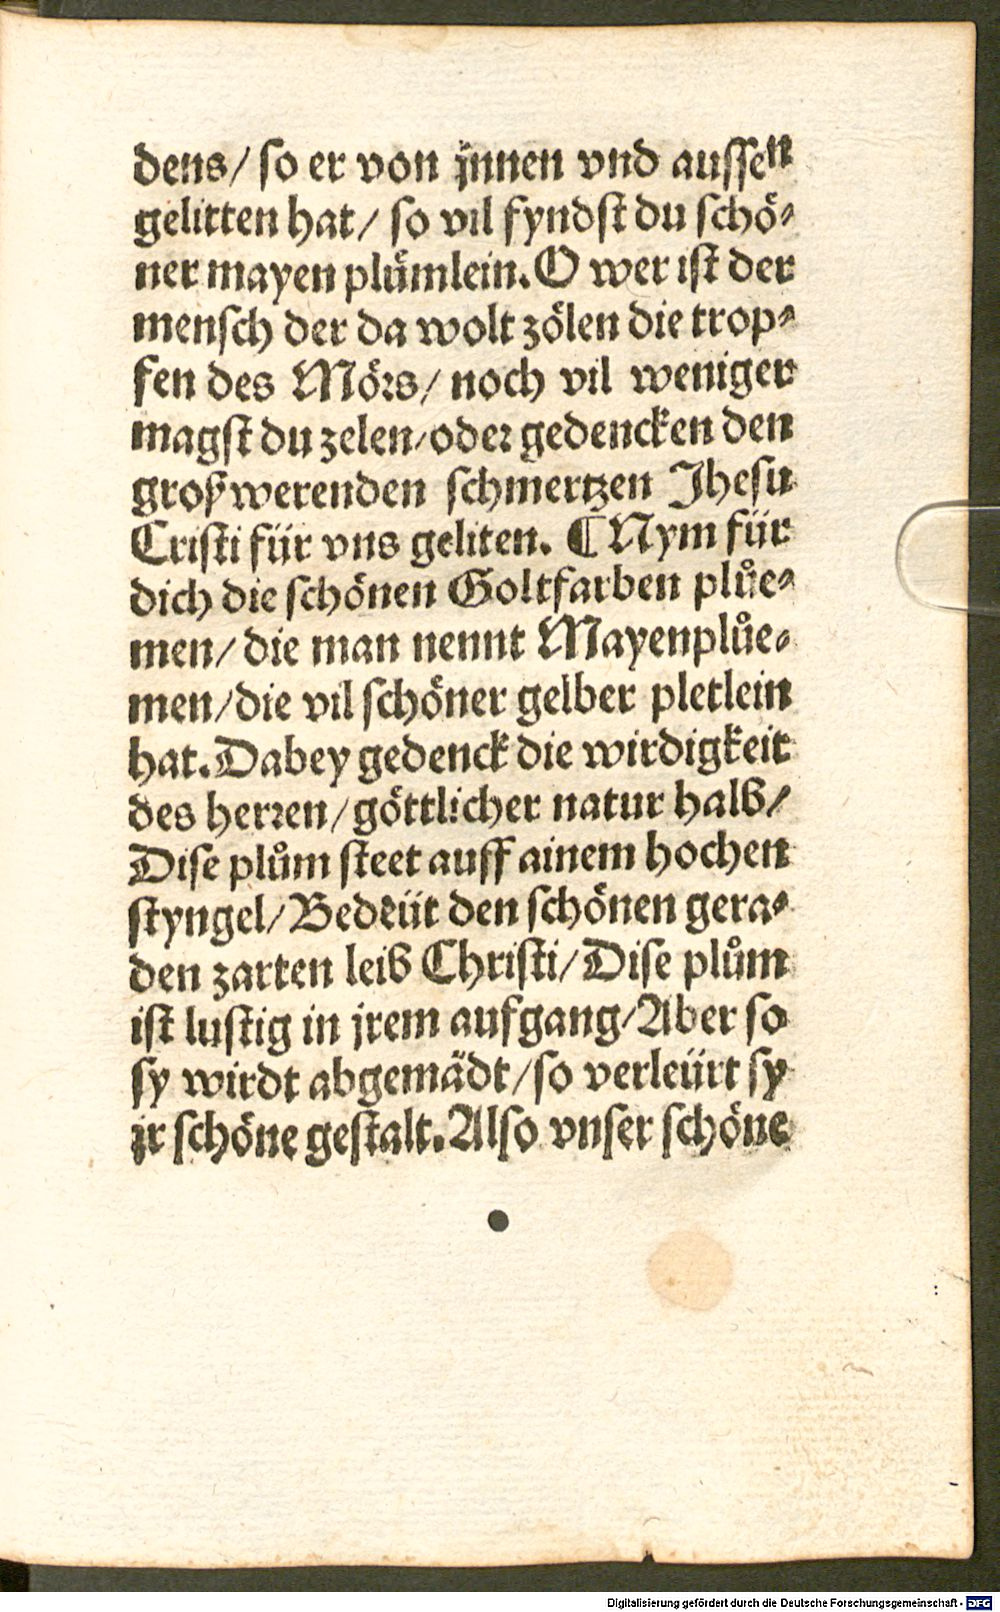 dens/ so er von jnnen vnd aussen
gelitten hat/ so vil fyndst du schö-
ner mayen plůmlein. O wer ist der
mensch der da wolt zölen die trop-
fen des Mörs/ noch vil weniger
magst du zelen/ oder gedencken den
groß werenden schmertzen Jhesu
Cristi für vns geliten. ¶ Nym für
dich die schönen Goltfarben plůe-
men/ die man nennt Mayenplůe-
men/ die vil schöner gelber pletlein
hat. Dabey gedenck die wirdigkeit
des herren/ göttlicher natur halb/
Dise plům steet auff ainem hochen
styngel/ Bedeüt den schönen gera-
den zarten leib Christi/ Dise plům
ist lustig in jrem aufgang/ Aber so
sy wirdt abgemädt/ so verleürt sy
jr schöne gestalt. Also vnser schöne
Digitalisierung gefördert durch die Deutsche Forschungsgemeinschaft - DFG